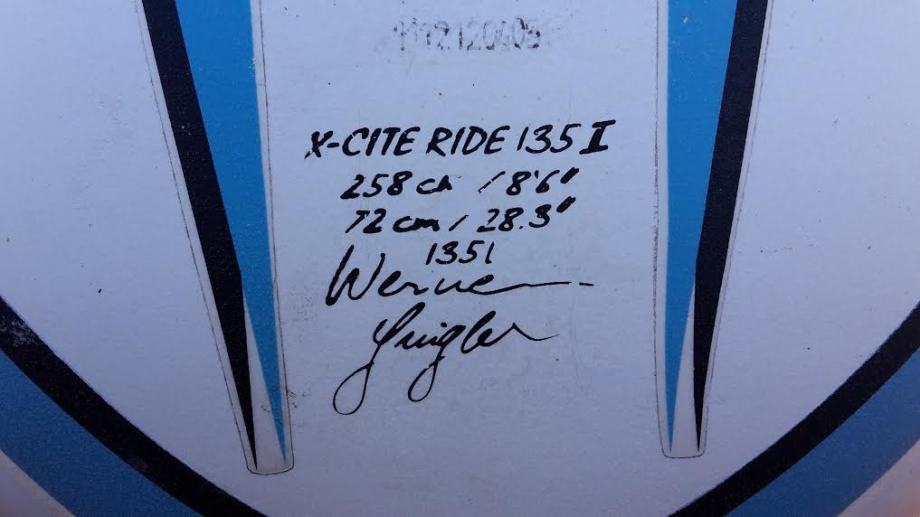 X-CITE RIDE 135 I
258 cm / 8'6"
72 cm / 28.3"
135l
Werner
Gnigler